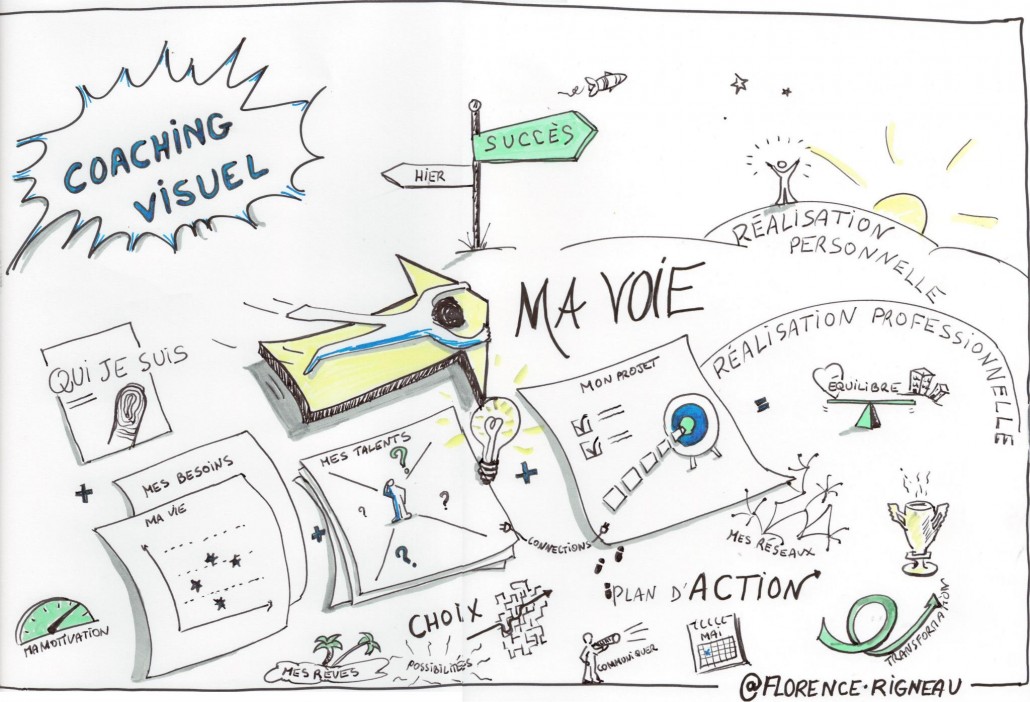 COACHING
VISUEL
SUCCÈS
HIER
RÉALISATION
PERSONNELLE
MA VOIE
RÉALISATION PROFESSIONNELLE
QUI JE SUIS
MON PROJET
EQUILIBRE
MES BESOINS
MES TALENTS
MA VIE
+
+
+
=
?
?
?
?
CONNECTIONS
MES RÉSEAUX
PLAN D'ACTION
CHOIX
MA MOTIVATION
MES RÊVES
POSSIBILITÉS
COMMUNIQUER
MAI
TRANSFORMATION
@FLORENCE·RIGNEAU